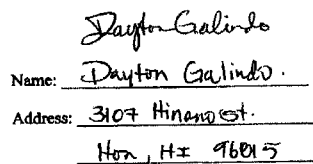 Dayton Galindo
Name: Dayton Galindo.
Address: 3107 Hinano st.
Hon, HI 96815